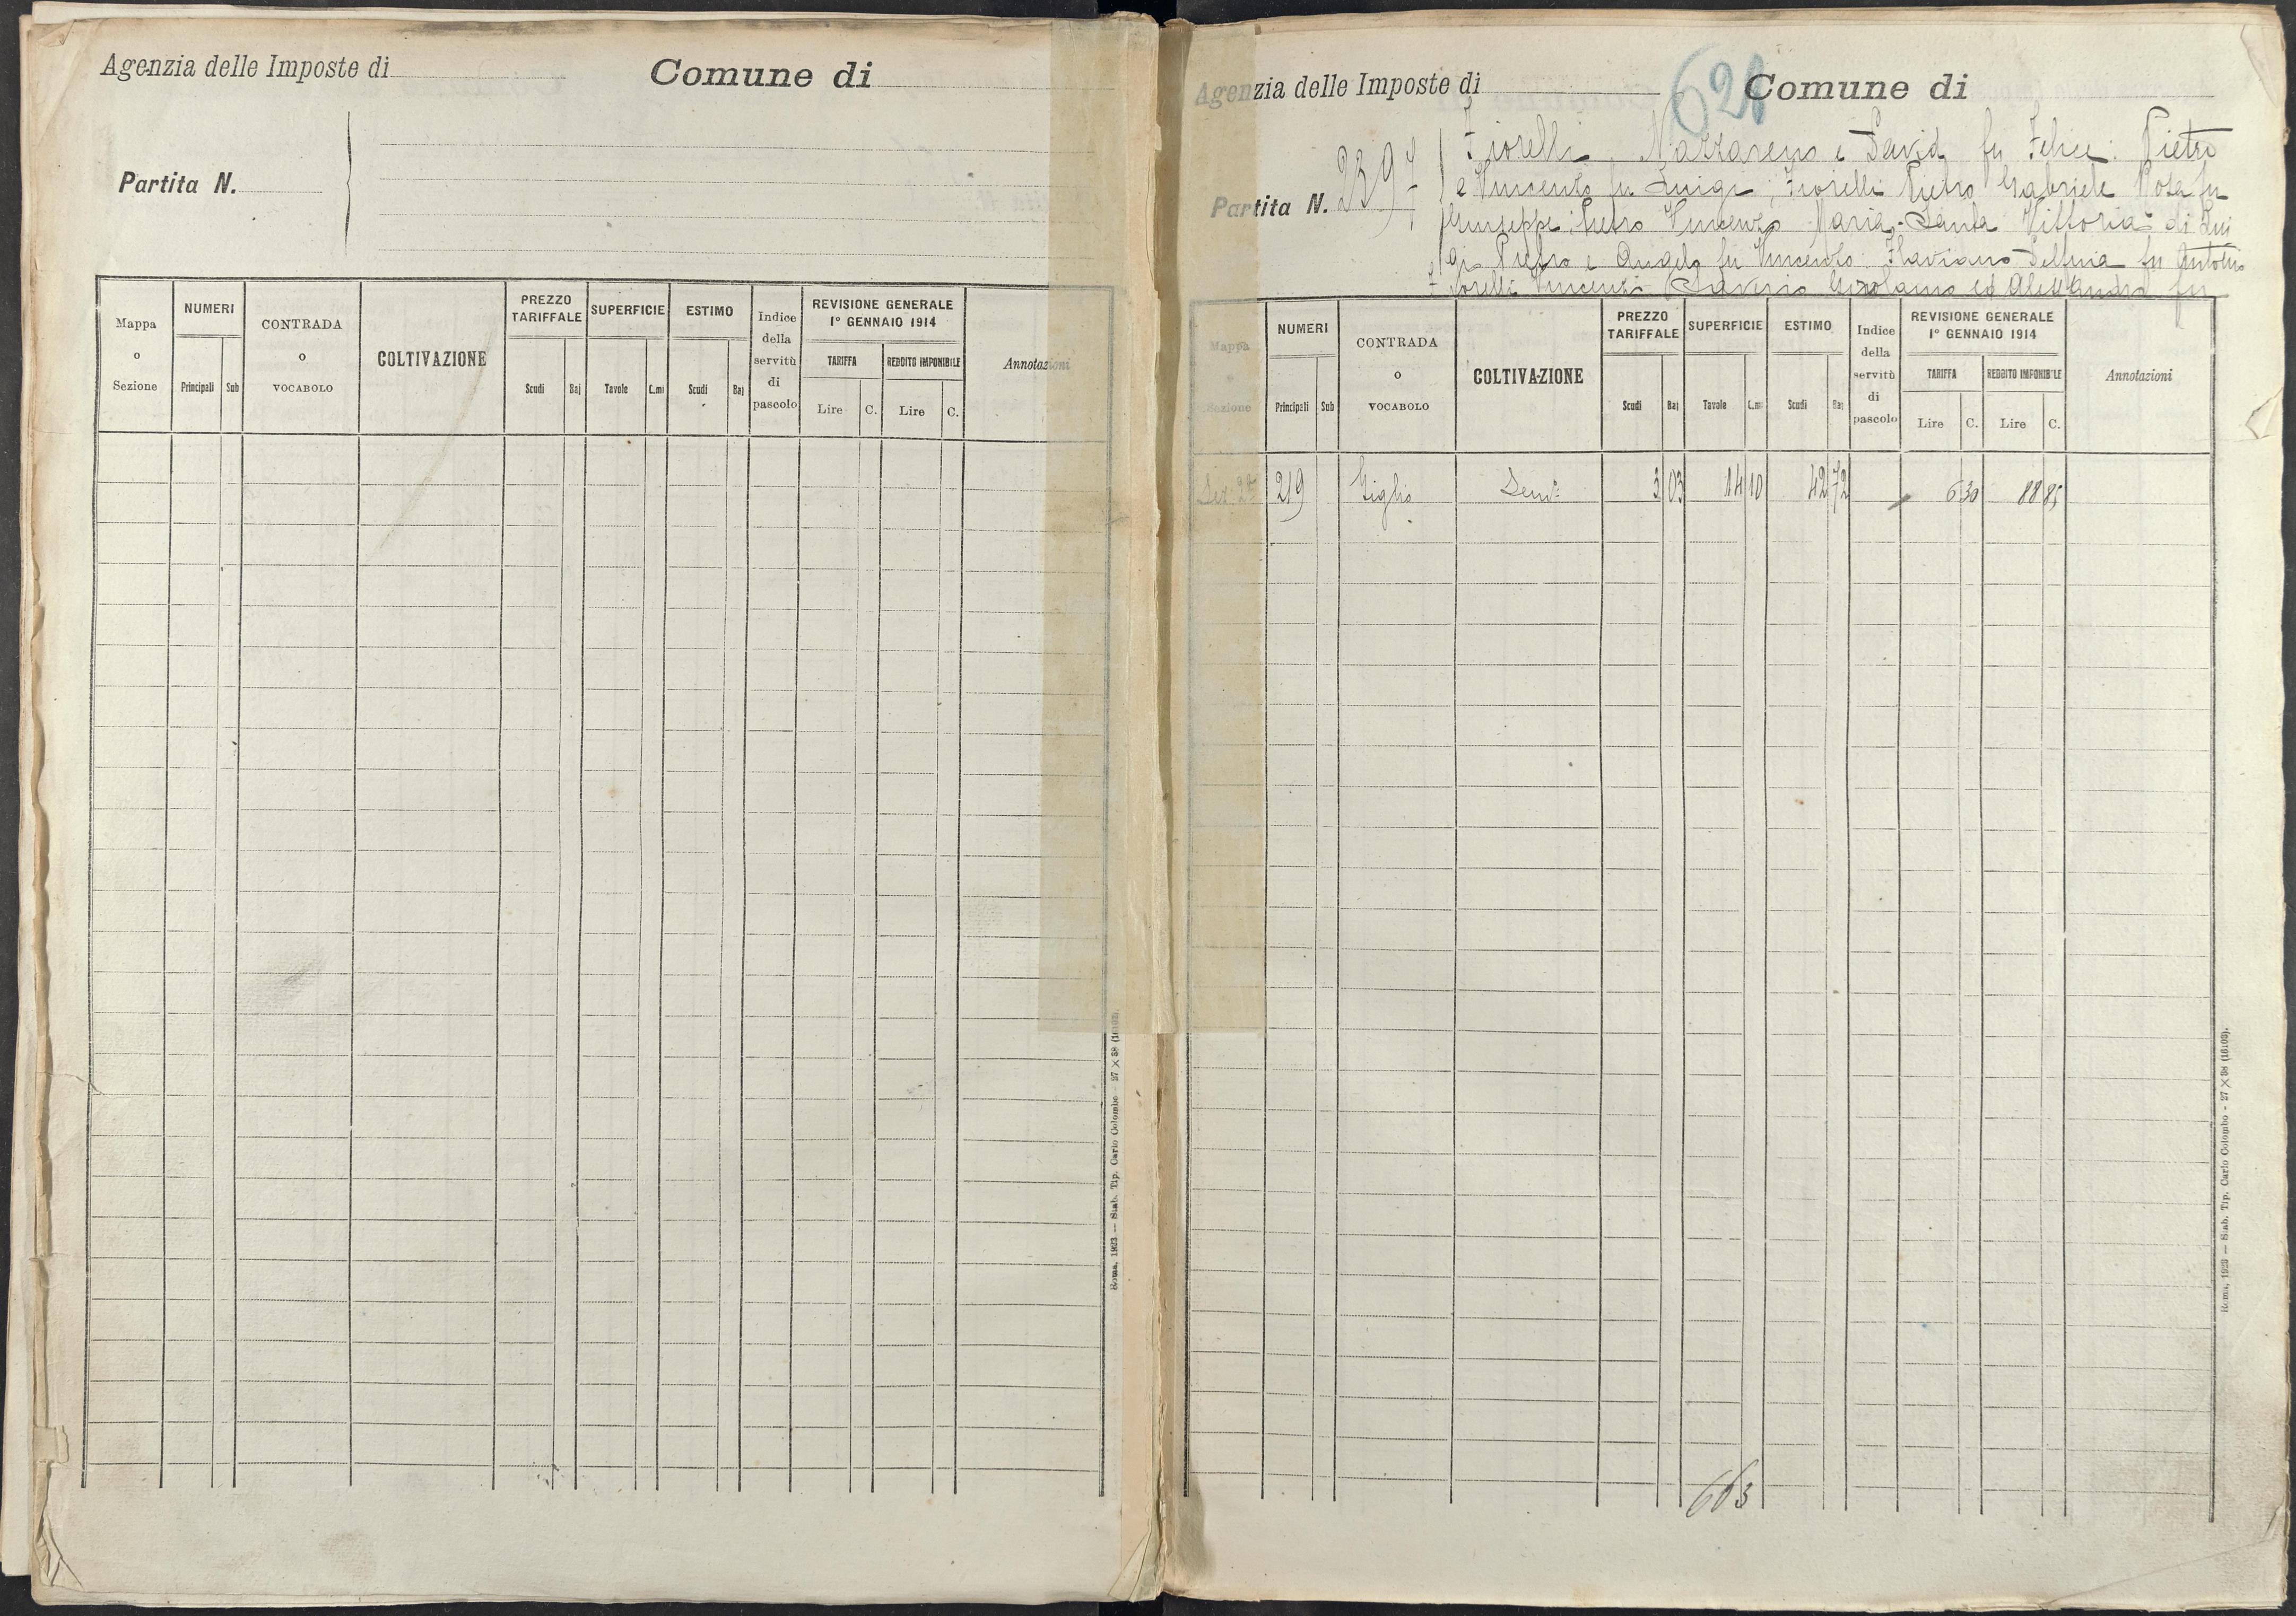 Agenzia delle Imposte di
Comune di
Partita N.
Mappa o Sezione
NUMERI
Principali
Sub
CONTRADA o VOCABOLO
COLTIVAZIONE
PREZZO TARIFFALE
Scudi
Baj
SUPERFICIE
Tavole
C.mi
ESTIMO
Scudi
Baj
Indice della servitù di pascolo
REVISIONE GENERALE
1° GENNAIO 1914
TARIFFA
REDDITO IMPONIBILE
Lire
C.
Lire
C.
Annotazioni
Roma, 1923 — Stab. Tip. Carlo Colombo - 27 × 38 (16103).
Agenzia delle Imposte di
628
Comune di
Partita N.
Fiorelli Nazzareno e David fu Felice: Pietro
e Vincenzo fu Luigi; Fiorelli Pietro Gabriele Rosa fu
Giuseppe; Pietro Vincenzo Maria-Santa Vittoria di Lui
gi Pietro e Angelo fu Vincenzo: Flaviano Delfina fu Antonio
Fiorelli Vincenzo Saverio Girolamo ed Alessandro fu
Mappa o Sezione
NUMERI
Principali
Sub
CONTRADA o VOCABOLO
COLTIVAZIONE
PREZZO TARIFFALE
Scudi
Baj
SUPERFICIE
Tavole
C.mi
ESTIMO
Scudi
Baj
Indice della servitù di pascolo
REVISIONE GENERALE
1° GENNAIO 1914
TARIFFA
REDDITO IMPONIBILE
Lire
C.
Lire
C.
Annotazioni
219 Giglio Sem° 3 03 14 10 42 72 6 30 88 85
663
Roma, 1923 — Stab. Tip. Carlo Colombo - 27 × 38 (16103).